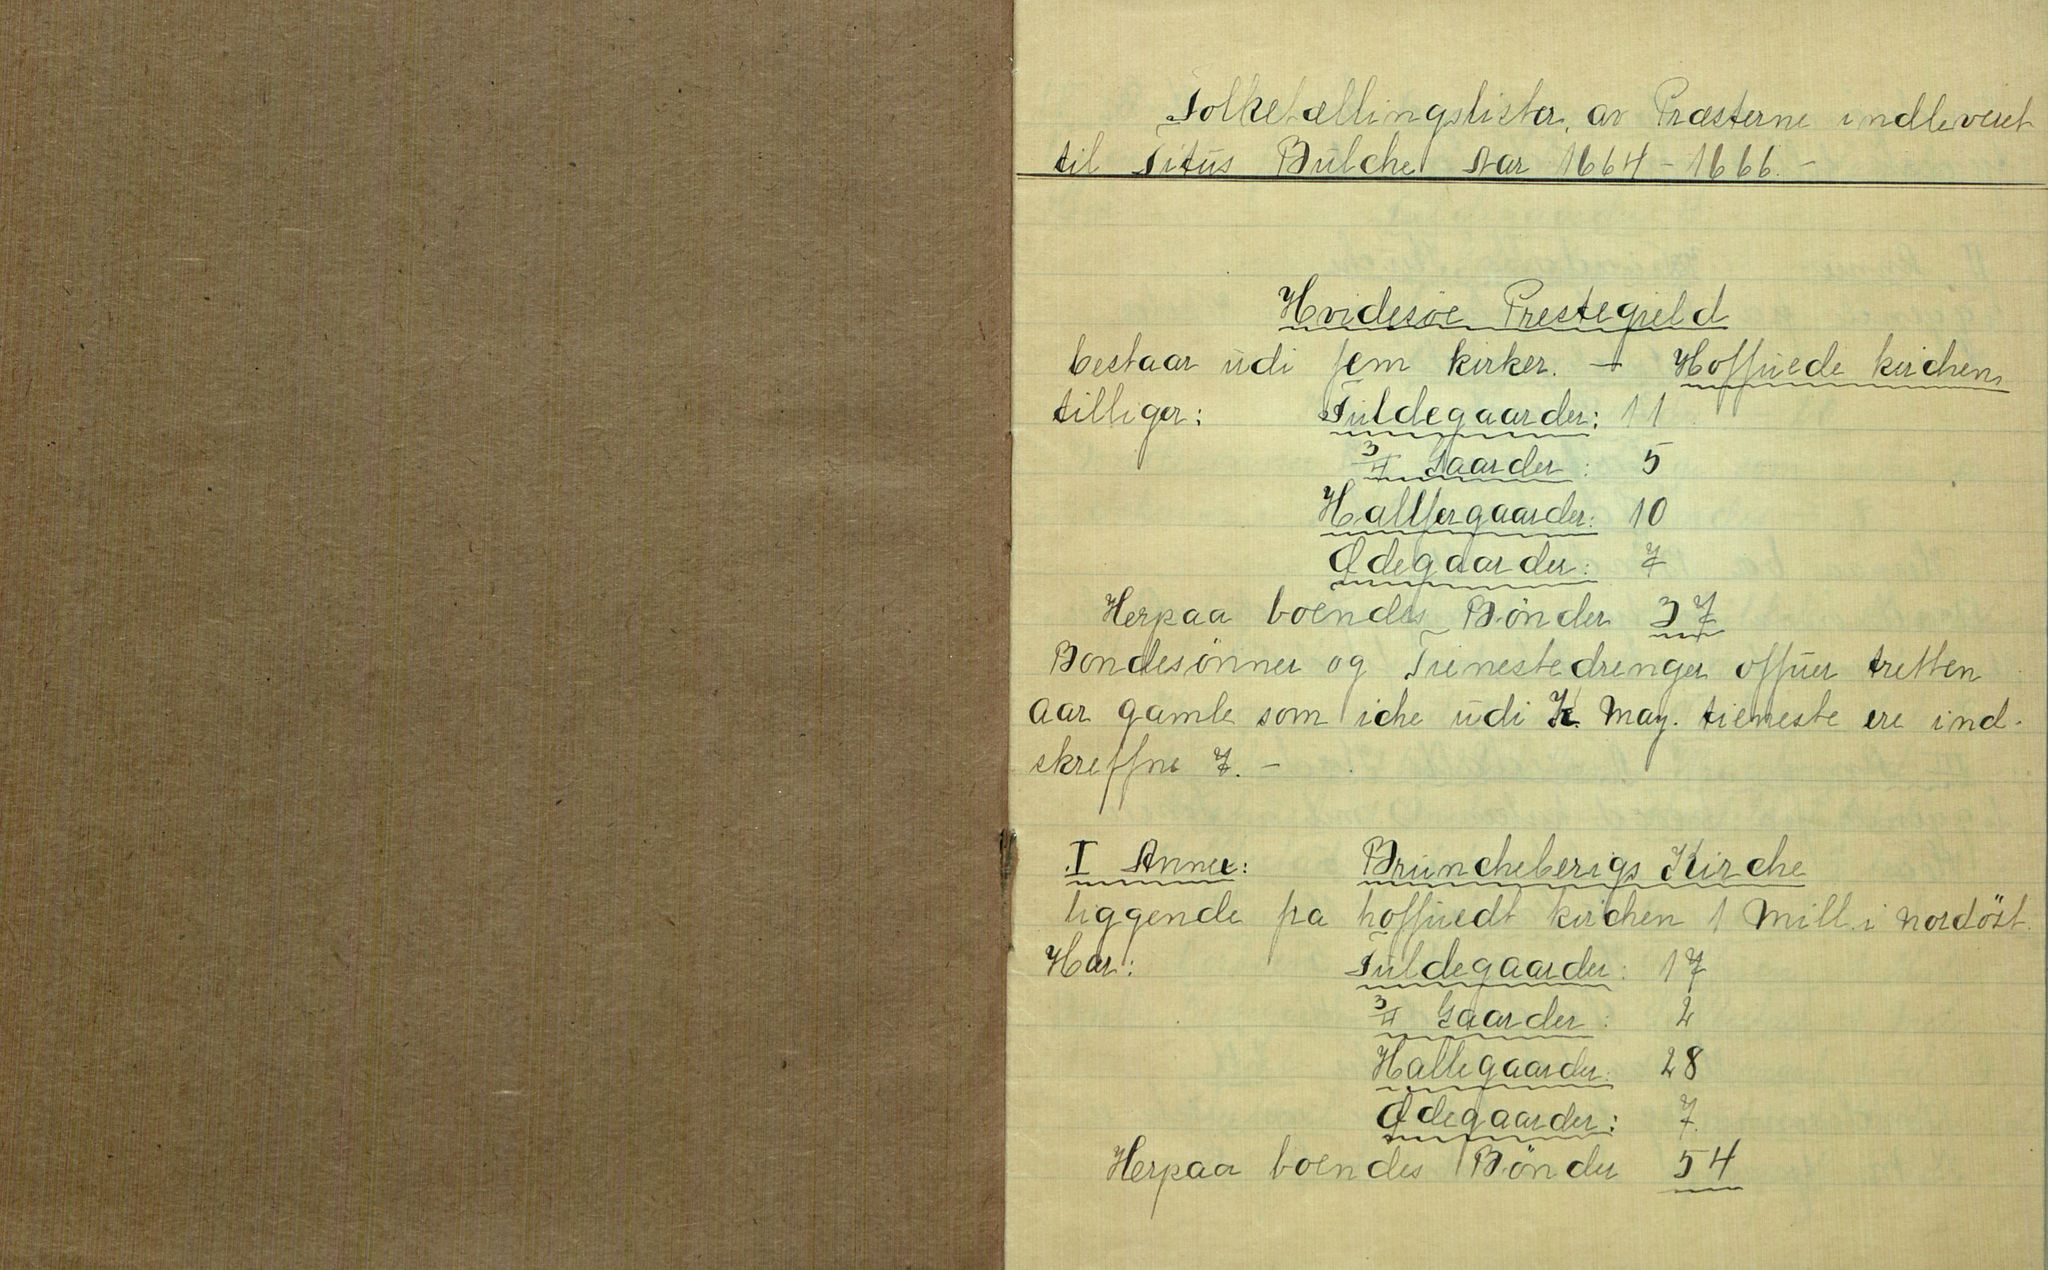 Folketællingslister, av Præsterne indleveret
til Titus Bülche Aar 1664-1666.-
Hvidesøe Prestegield
bestaar üdi fem kirker. - Hoffüede kirchen,
tilliger: Füldegaarder: 11
3/4 Gaarder: 5
Halffergaarder: 10
Ødegaarder: 7
Herpaa boendes Bönder 37
Bondesönner og Tienestedrenger offüer tretten
aar gamle som iche üdi K. May. tieneste ere ind-
skreffne 7. -
I Annex: Brüncheberigs Kirche
liggende fra hoffüedt kirchen 1 Mill i nordöst.
Har: Füldegaarder: 17
3/4 Gaarder: 2
Hallegaarder: 28
Ødegaarder: 7.
Herpaa boendes Bönder 54